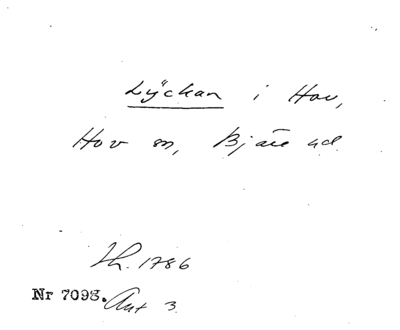 Lÿckan i Hov,
Hov sn, Bjäre hd
Lh. 1786
Nr 7093. Akt 3.